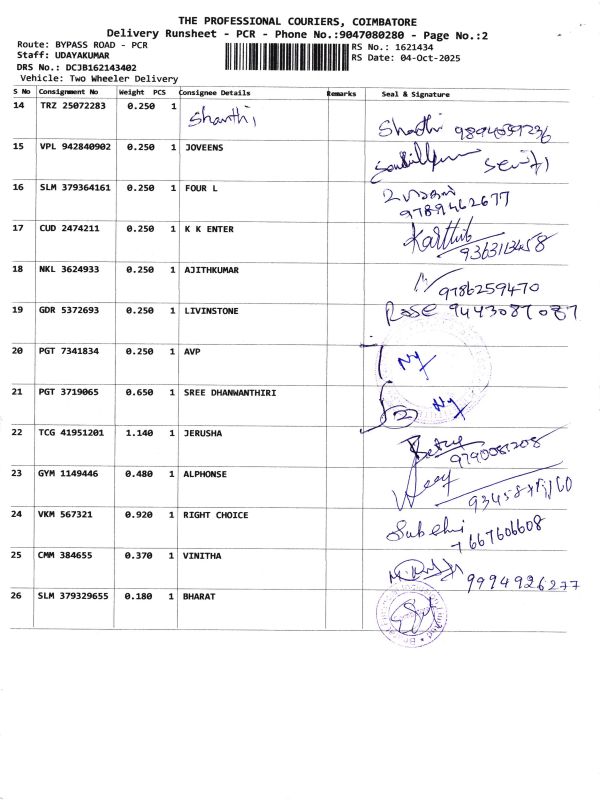 THE PROFESSIONAL COURIERS, COIMBATORE
Delivery Runsheet - PCR - Phone No.:9047080280 - Page No.:2
Route: BYPASS ROAD - PCR
RS No.: 1621434
Staff: UDAYAKUMAR
RS Date: 04-Oct-2025
DRS No.: DCJB162143402
Vehicle: Two Wheeler Delivery
S No Consignment No Weight PCS Consignee Details Remarks Seal & Signature
14 TRZ 25072283 0.250 1 Shanthi Shanthi 9894039236
15 VPL 942840902 0.250 1 JOVEENS
16 SLM 379364161 0.250 1 FOUR L
9789462677
17 CUD 2474211 0.250 1 K K ENTER Karthik
9363113458
18 NKL 3624933 0.250 1 AJITHKUMAR
9786259470
19 GDR 5372693 0.250 1 LIVINSTONE Rose 9443087087
20 PGT 7341834 0.250 1 AVP
21 PGT 3719065 0.650 1 SREE DHANWANTHIRI
2
22 TCG 41951201 1.140 1 JERUSHA
9790081208
23 GYM 1149446 0.480 1 ALPHONSE
24 VKM 567321 0.920 1 RIGHT CHOICE
7667606608
25 CMM 384655 0.370 1 VINITHA
9994926277
26 SLM 379329655 0.180 1 BHARAT